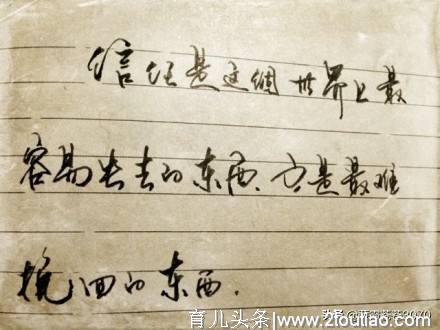 信任是这個世界上最
容易失去的东西、也是最难
挽回的东西.
育儿头条 www.2foutiao.com